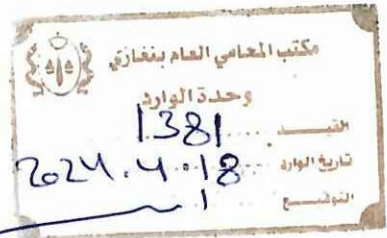 مكتب المحامي العام بنغازي
وحدة الوارد
القيد ..... 1381
تاريخ الوارد 2024.4.18
التوقيع